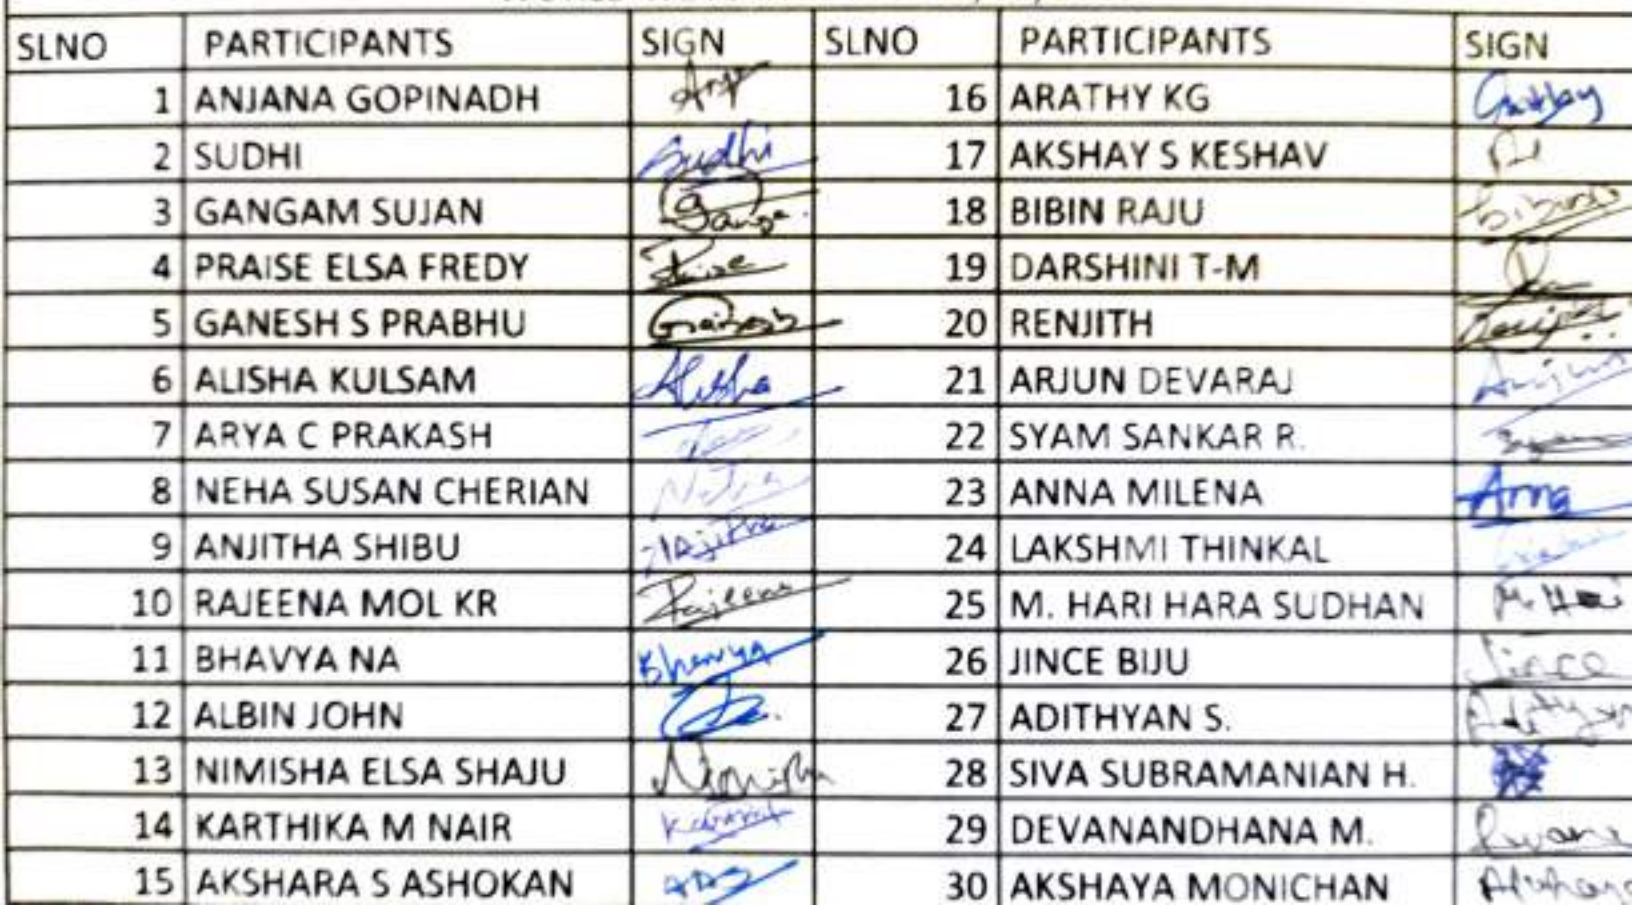 SLNO PARTICIPANTS SIGN SLNO PARTICIPANTS SIGN
1 ANJANA GOPINADH 16 ARATHY KG
2 SUDHI Sudhi 17 AKSHAY S KESHAV
3 GANGAM SUJAN 18 BIBIN RAJU
4 PRAISE ELSA FREDY Praise 19 DARSHINI T-M
5 GANESH S PRABHU Ganesh 20 RENJITH
6 ALISHA KULSAM Alisha 21 ARJUN DEVARAJ Arjun
7 ARYA C PRAKASH 22 SYAM SANKAR R.
8 NEHA SUSAN CHERIAN 23 ANNA MILENA Anna
9 ANJITHA SHIBU 24 LAKSHMI THINKAL
10 RAJEENA MOL KR Rajeena 25 M. HARI HARA SUDHAN
11 BHAVYA NA Bhavya 26 JINCE BIJU Jince
12 ALBIN JOHN 27 ADITHYAN S. Adithyan
13 NIMISHA ELSA SHAJU Nimisha 28 SIVA SUBRAMANIAN H.
14 KARTHIKA M NAIR 29 DEVANANDHANA M.
15 AKSHARA S ASHOKAN 30 AKSHAYA MONICHAN Akshaya